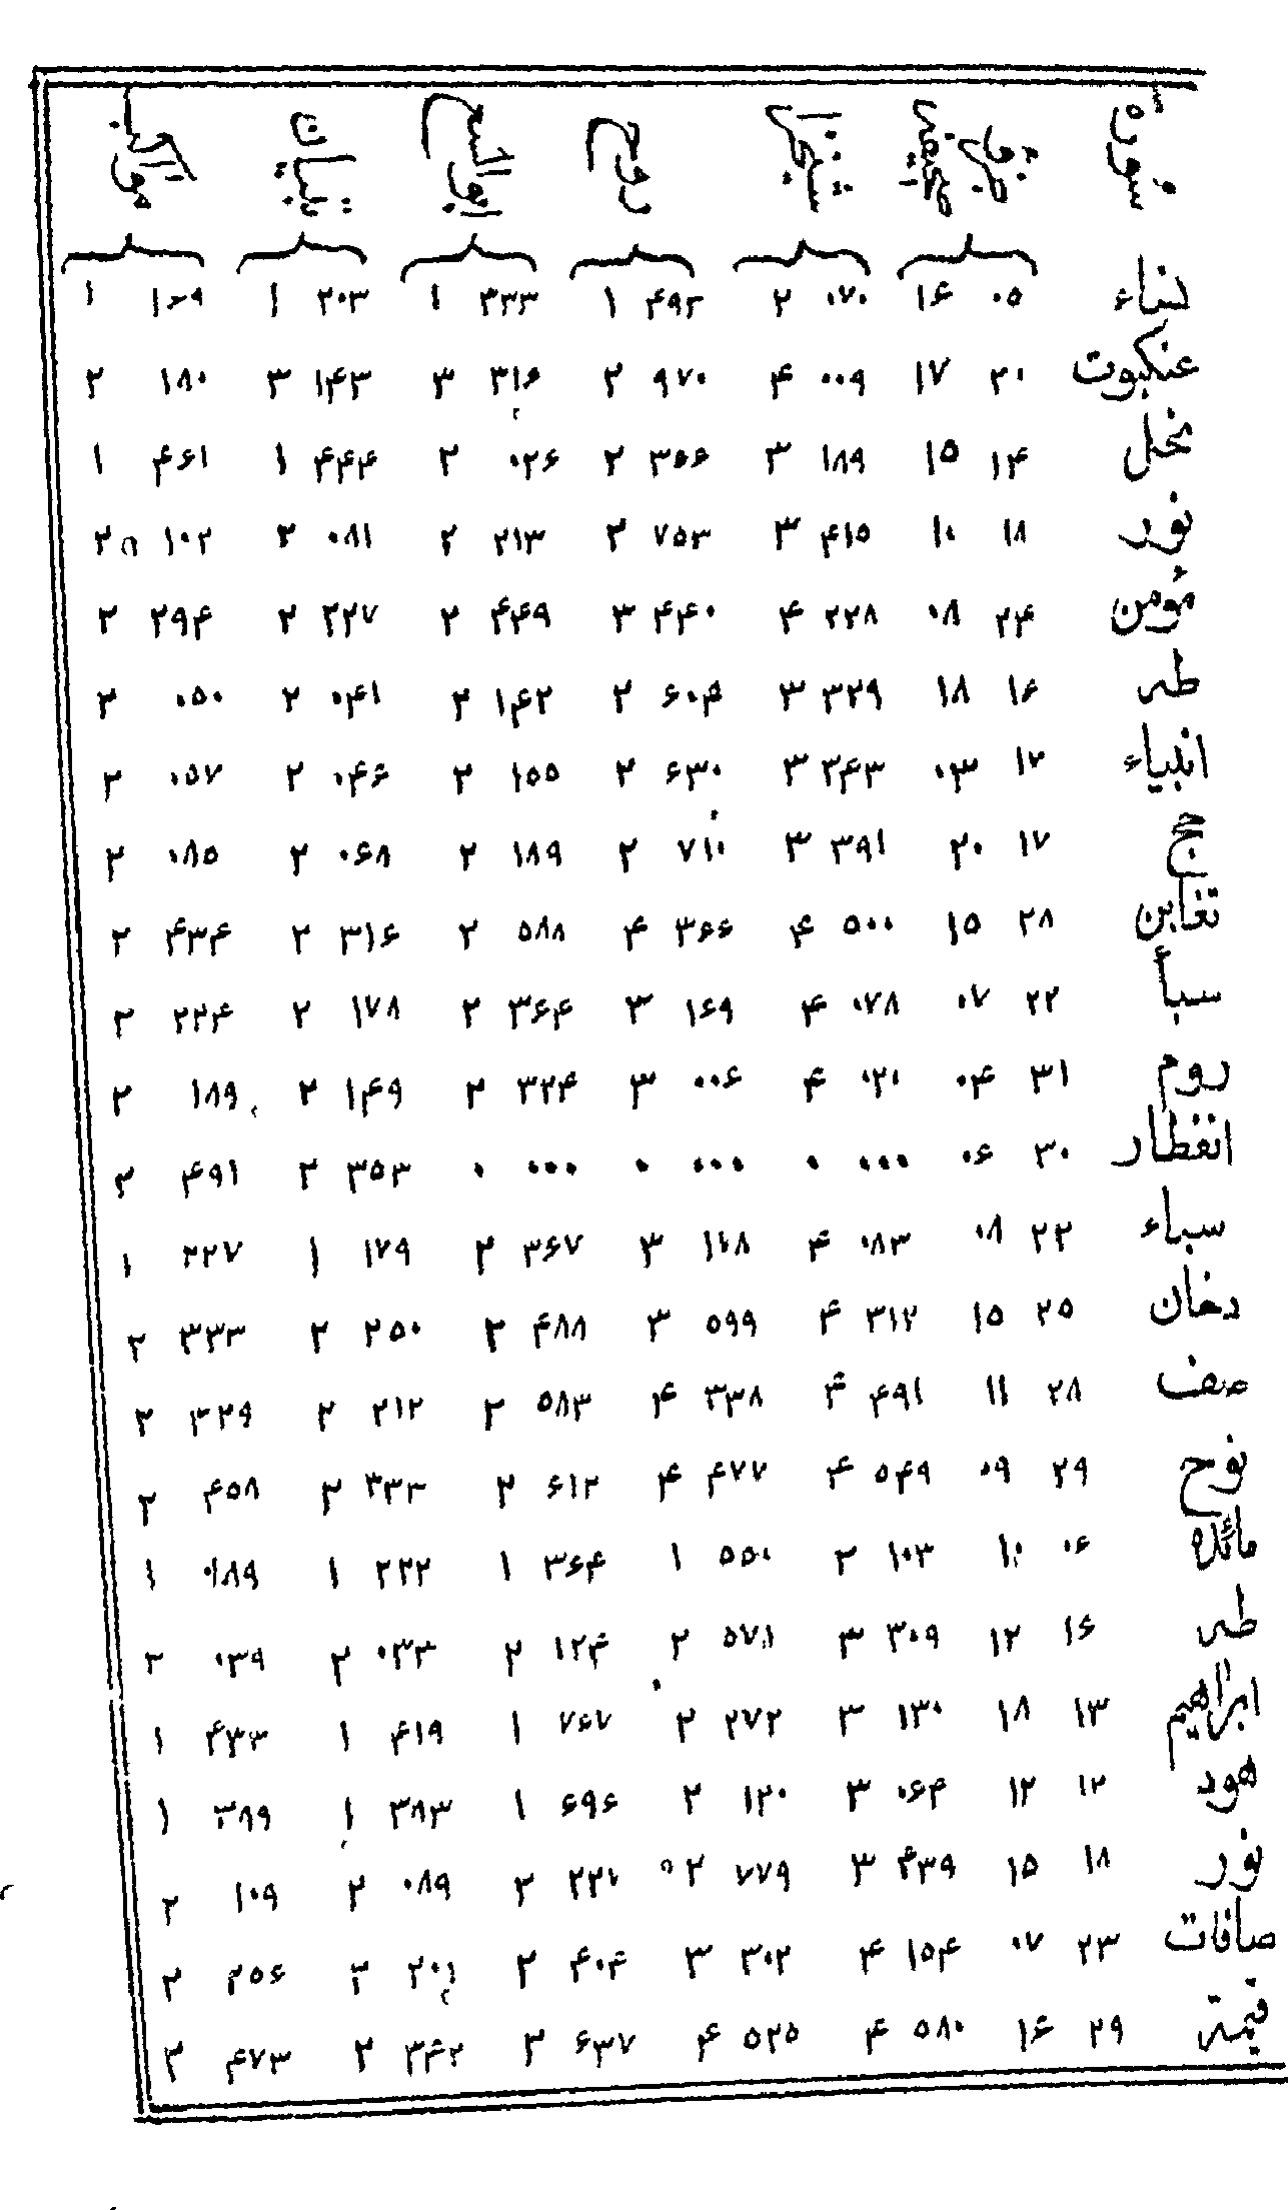 سوره
نساء ۰۵ ۱۶ ۰۷۰ ۲ ۴۹۳ ۱ ۳۳۳ ۱ ۲۰۳ ۱ ۱۶۹ ۱
عنکبوت ۲۰ ۱۷ ۰۰۹ ۴ ۹۷۰ ۲ ۳۱۶ ۳ ۱۴۳ ۳ ۱۸۰ ۲
نحل ۱۴ ۱۵ ۱۸۹ ۳ ۳۶۶ ۲ ۰۲۶ ۲ ۴۴۴ ۱ ۴۶۱ ۱
نور ۱۸ ۱۰ ۴۱۵ ۳ ۷۵۳ ۲ ۲۱۳ ۲ ۰۸۱ ۲ ۱۰۲ ۲
مؤمن ۲۴ ۰۸ ۲۲۸ ۴ ۴۴۰ ۳ ۴۴۹ ۲ ۲۲۷ ۲ ۲۹۴ ۲
طه ۱۶ ۱۸ ۳۲۹ ۳ ۶۰۴ ۲ ۱۴۲ ۲ ۰۴۱ ۲ ۰۵۰ ۲
انبیاء ۱۷ ۰۳ ۳۴۳ ۳ ۶۳۰ ۲ ۱۵۵ ۲ ۰۴۶ ۲ ۰۵۷ ۲
حج ۱۷ ۲۰ ۳۹۱ ۳ ۷۱۰ ۲ ۱۸۹ ۲ ۰۶۸ ۲ ۰۸۵ ۲
تغابن ۲۸ ۱۵ ۵۰۰ ۴ ۳۶۶ ۴ ۵۸۸ ۲ ۳۱۶ ۲ ۴۳۴ ۲
سبأ ۲۲ ۰۷ ۰۷۸ ۴ ۱۶۹ ۳ ۳۶۴ ۲ ۱۷۸ ۲ ۲۲۴ ۲
روم ۳۱ ۰۴ ۰۲۰ ۴ ۰۰۶ ۳ ۳۲۴ ۲ ۱۴۹ ۲ ۱۸۹ ۲
انفطار ۳۰ ۰۶ ۰۰۰ ۰ ۰۰۰ ۰ ۰۰۰ ۰ ۳۵۳ ۲ ۴۹۱ ۲
سباء ۲۲ ۰۸ ۰۸۳ ۴ ۱۷۸ ۳ ۳۶۷ ۲ ۱۷۹ ۱ ۲۲۷ ۱
دخان ۲۵ ۱۵ ۳۱۲ ۴ ۵۹۹ ۳ ۴۸۸ ۲ ۲۵۰ ۲ ۳۳۳ ۲
صف ۲۸ ۱۱ ۴۹۱ ۴ ۳۳۸ ۴ ۵۸۳ ۲ ۲۱۲ ۲ ۳۲۹ ۲
نوح ۲۹ ۰۹ ۵۴۹ ۴ ۴۷۷ ۴ ۶۱۲ ۲ ۳۳۳ ۲ ۴۵۸ ۲
مائده ۰۶ ۱۰ ۱۰۳ ۲ ۵۵۰ ۱ ۳۶۴ ۱ ۲۲۲ ۱ ۱۸۹ ۱
طه ۱۶ ۱۲ ۳۰۹ ۳ ۵۷۱ ۲ ۱۲۴ ۲ ۰۳۳ ۲ ۰۳۹ ۲
ابراهیم ۱۳ ۱۸ ۱۳۰ ۳ ۲۷۲ ۲ ۷۶۷ ۱ ۴۱۹ ۱ ۴۳۳ ۱
هود ۱۲ ۱۲ ۰۶۴ ۳ ۱۲۰ ۲ ۶۹۶ ۱ ۳۸۳ ۱ ۳۸۹ ۱
نور ۱۸ ۱۵ ۴۳۹ ۳ ۷۷۹ ۲ ۲۲۷ ۲ ۰۸۹ ۲ ۱۰۹ ۲
صافات ۲۳ ۰۷ ۱۵۴ ۴ ۳۰۲ ۳ ۴۰۴ ۲ ۲۰۱ ۲ ۲۵۶ ۲
قیمة ۲۹ ۱۶ ۵۸۰ ۴ ۵۲۵ ۴ ۶۳۷ ۲ ۳۴۲ ۲ ۴۷۳ ۲